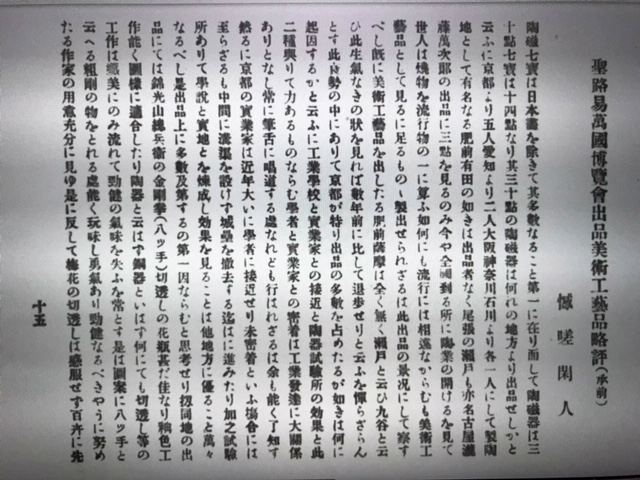 聖路易萬國博覽會出品美術工藝品略評(承前)
憾嗟閑人
陶磁七寶は日本畫を除きて其多數なること第一に在り而して陶磁器は三
十點七寶は十四點なり其三十點の陶磁器は何れの地方より出品せしかと
云ふに京都より五人愛知より二人大阪神奈川石川より各一人にして製陶
地として有名なる肥前有田の如きは出品者なく尾張の瀬戸も亦名古屋瀧
藤萬次郎の出品に三點を見るのみ今や全國到る所に陶業の開けるを見て
世人は燒物を流行物の一に算ふ如何にも流行には相違なからむも美術工
藝品として見るに足るもの製出せられざるは此出品の景况にして察す
べし既に美術工藝品を出したる肥前薩摩は全く無く瀬戸と云ひ九谷と云
ひ此生氣なきの狀を見れば數年前に比して退歩せりと云ふを憚らざらん
とす此衰勢の中にありて京都が特り出品の多數を占めたるが如きは何に
起因するかと云ふに工業學校と實業家との接近と陶器試驗所の効果と此
二種與りて力あるものならむ學者と實業家との密着は工業發達に大關係
ありとなし常に筆舌に唱道する處なれども行はれざるは余も能く了知す
然るに京都の實業家は近年大いに學者に接近せり未密着といふ塲合には
至らざるも中間に溝渠を設けず城壘を撤去する迄はに進みたり加之試驗
所ありて學説と實地とを煉成し効果を見ることは他地方に優ること萬々
なるべし是出品上に多數及第するの第一因ならむと思考せり扨同地の出
品にては錦光山宗兵衛の金剛拳(八ッ手)切透しの花瓶甚だ佳なり釉色工
作能く圖樣に適合したり陶器と云はず銅器といはず何にても切透し等の
工作は優美にのみ流れて勁健の氣味を失ふを常とす是は圖案に八ッ手と
云へる粗剛の物をとれる處能く玩味し勇氣あり勁健なるべきやうに努め
たる作家の用意充分に見ゆ是に反して梅花の切透しは感服せず百卉に先
十五